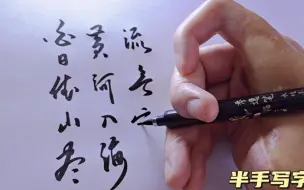 白日依山尽
黄河入海
流无之
半手写字